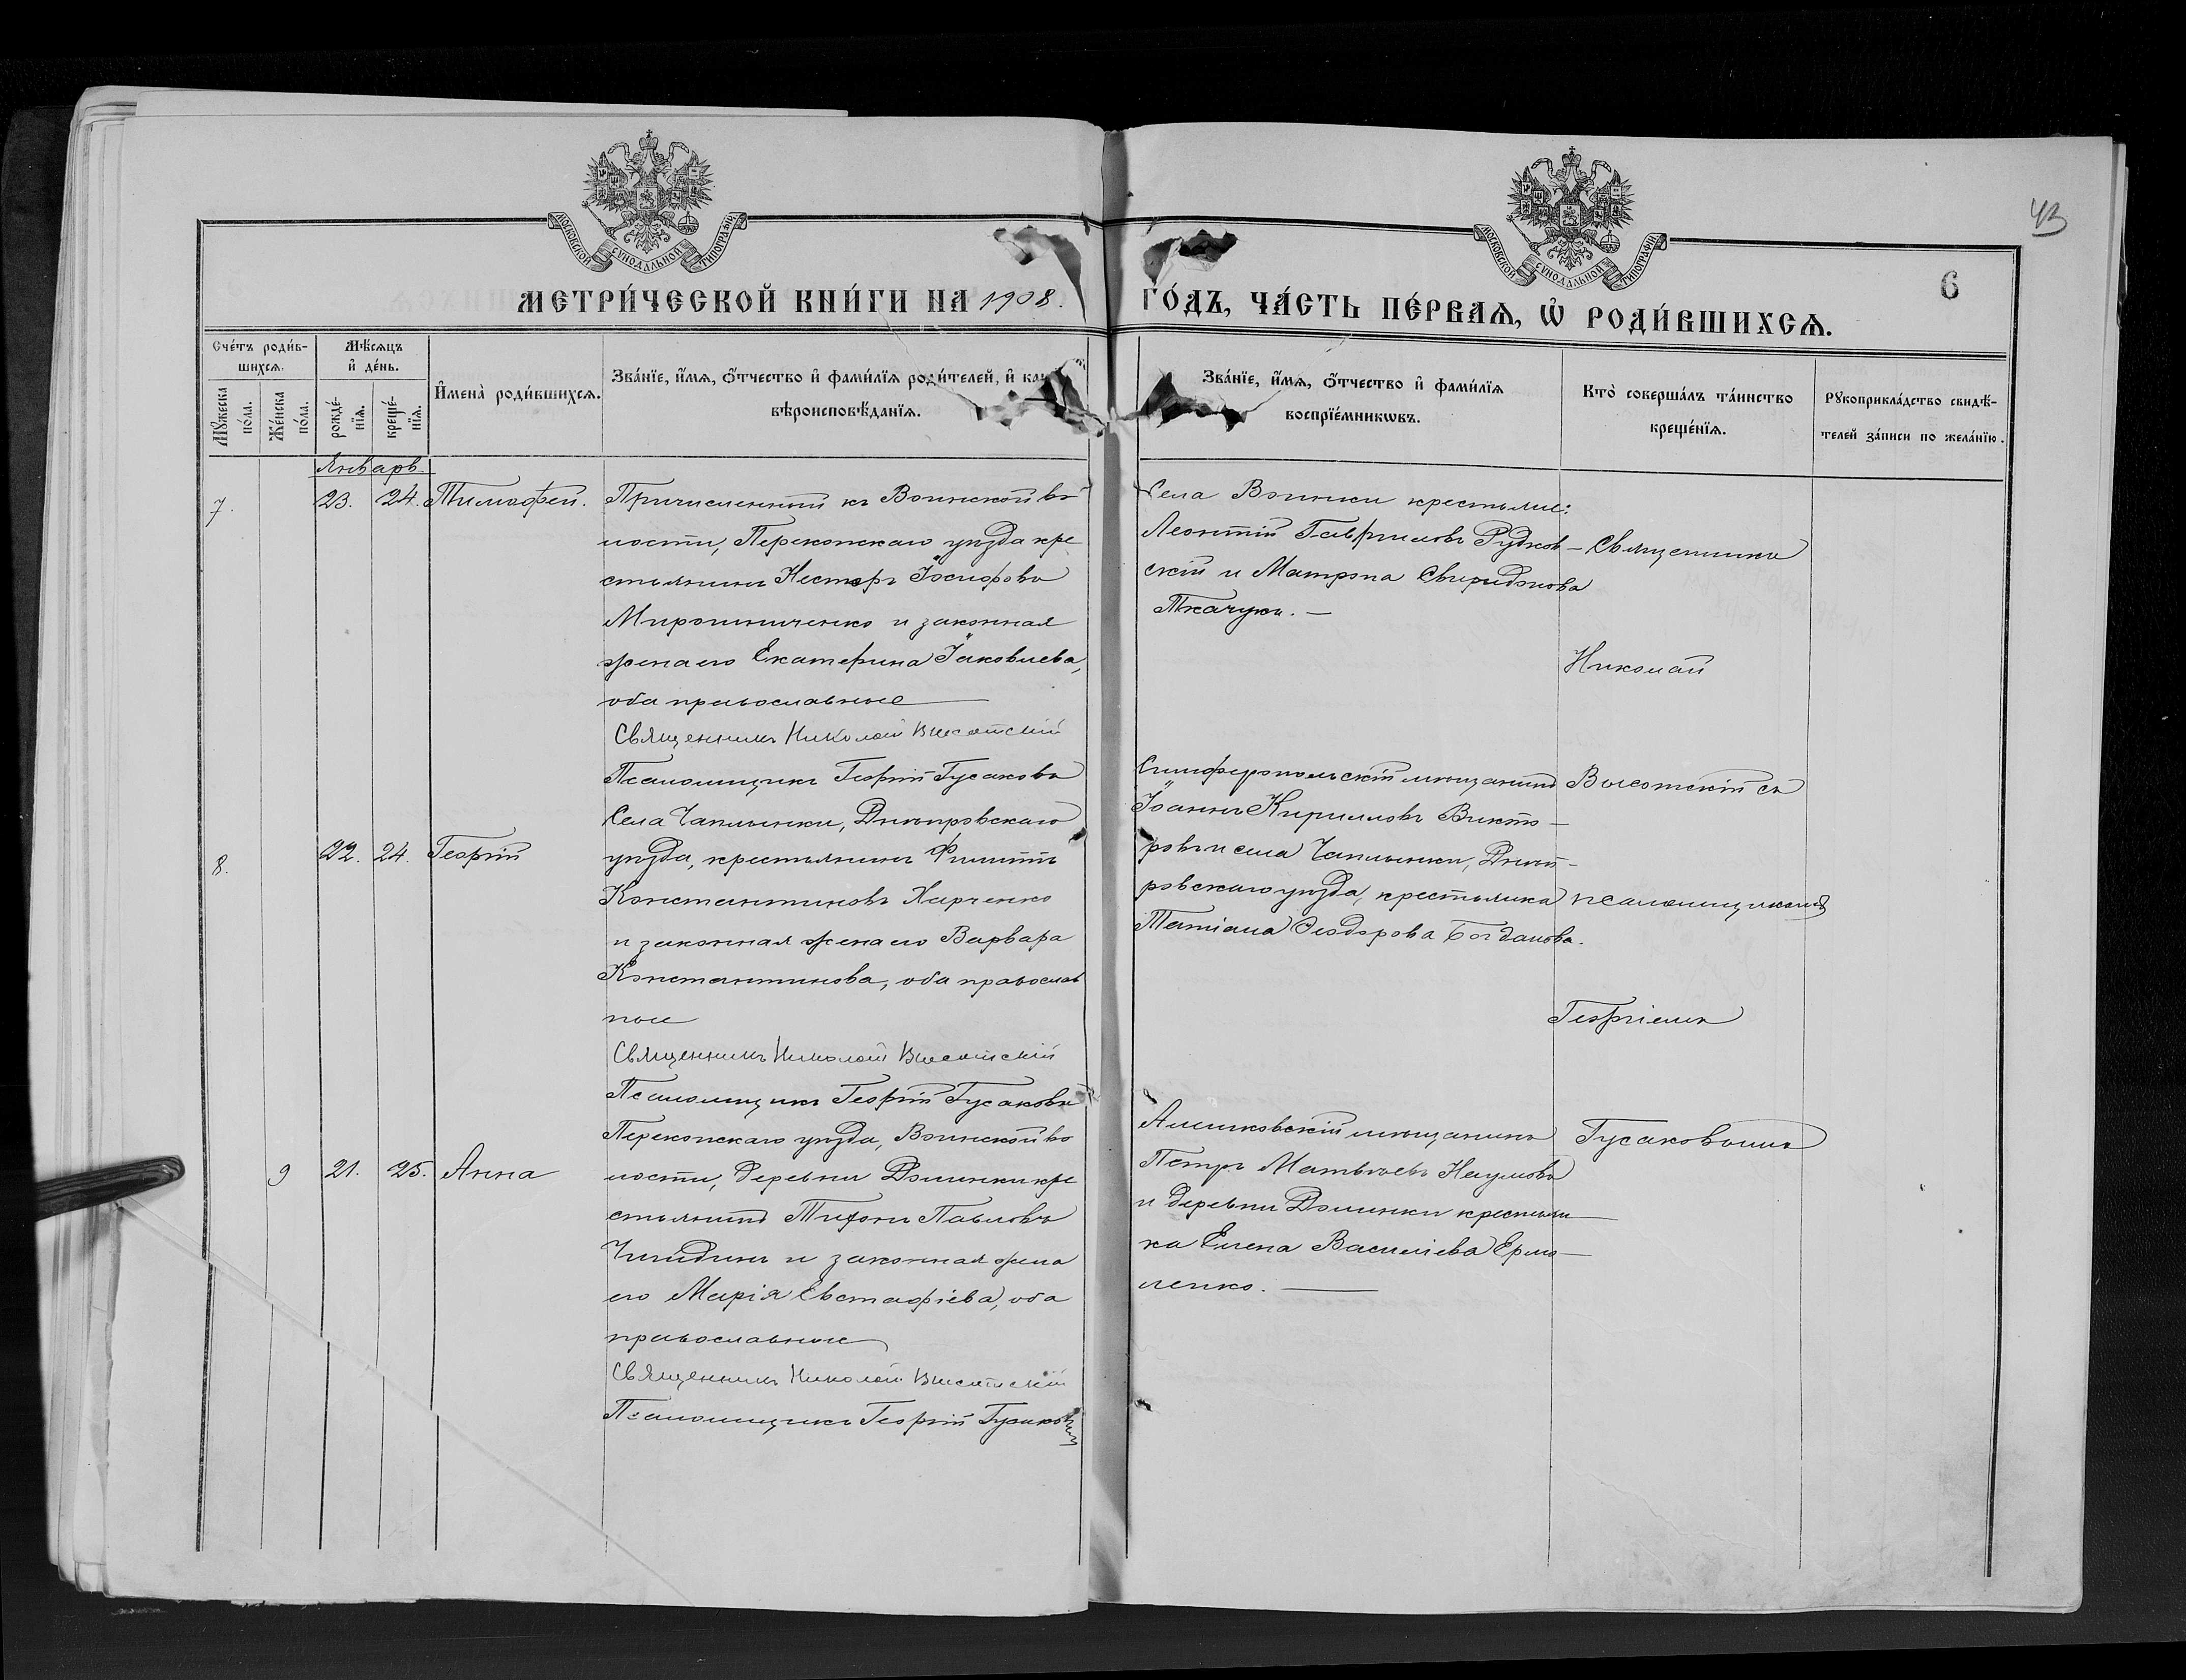 43
МОСКОВСКОЙ СУНОДАЛЬНОЙ ТИПОГРАФІИ
МОСКОВСКОЙ СУНОДАЛЬНОЙ ТИПОГРАФІИ
6
МЕТРИ́ЧЕСКОЙ КНИ́ГИ НА 1908. ГО́ДЪ, ЧА́СТЬ ПЕ́РВАѦ, Ѡ҆ РОДИ́ВШИХСѦ.
Сче́тъ роди́в-
шихсѧ.
Мꙋ́жеска по́ла.
Же́нска по́ла.
Мѣ́сѧцъ
и҆ де́нь.
рожде́-нїѧ.
креще́-нїѧ.
И҆мена̀ роди́вшихсѧ.
Зва́нїе, и҆́мѧ, ѻ҆́тчество и҆ фами́лїѧ роди́телей, и҆ как
вѣроисповѣ́данїѧ.
Зва́нїе, и҆́мѧ, ѻ҆́тчество и҆ фами́лїѧ
воспрїе́мникѡвъ.
Кто̀ соверша́лъ та́инство
креще́нїѧ.
Рꙋкоприкла́дство свидѣ́-
телей за́писи по жела́нїю.
Январь.
7. 23. 24. Тимофей.
Причисленный къ Воинской во
лости, Перекопскаго уѣзда кре
стьянинъ Несторъ Іосифовъ
Мирошниченко и законная
жена его Екатерина Іаковлева,
оба православные
Священникъ Николай Высотскій
Псаломщикъ Георгій Гусаковъ
Села Воинки крестьяне:
Леонтій Гавриловъ Рудков-
скій и Матрона Свиридонова
Ткачукъ. —
Священникъ
Николай
8. 22. 24. Георгій
Села Чаплынки, Днѣпровскаго
уѣзда, крестьянинъ Филиппъ
Константиновъ Харченко
и законная жена его Варвара
Константинова, оба православ
ные
Священникъ Николай Высотскій
Псаломщикъ Георгій Гусаковъ
Симферопольскій мѣщанинъ
Іоаннъ Кирилловъ Викто-
ровъ и села Чаплынки, Днѣп-
ровскаго уѣзда, крестьянка
Татіана Ѳеодорова Богданова.
Высотскій съ
псаломщикомъ
Георгіемъ
9 21. 25. Анна
Перекопскаго уѣзда, Воинской во
лости, деревни Долинки кре
стьянинъ Тихонъ Павловъ
и законная жена
его Марія Евстафіева, оба
православные
Священникъ Николай Высотскій
Псаломщикъ Георгій Гусаковъ
Алешковскій мѣщанинъ
Петръ Матвѣевъ Наумовъ
и деревни Долинки крестьян-
ка Елена Василіева Ермо-
ленко. —
Гусаковымъ